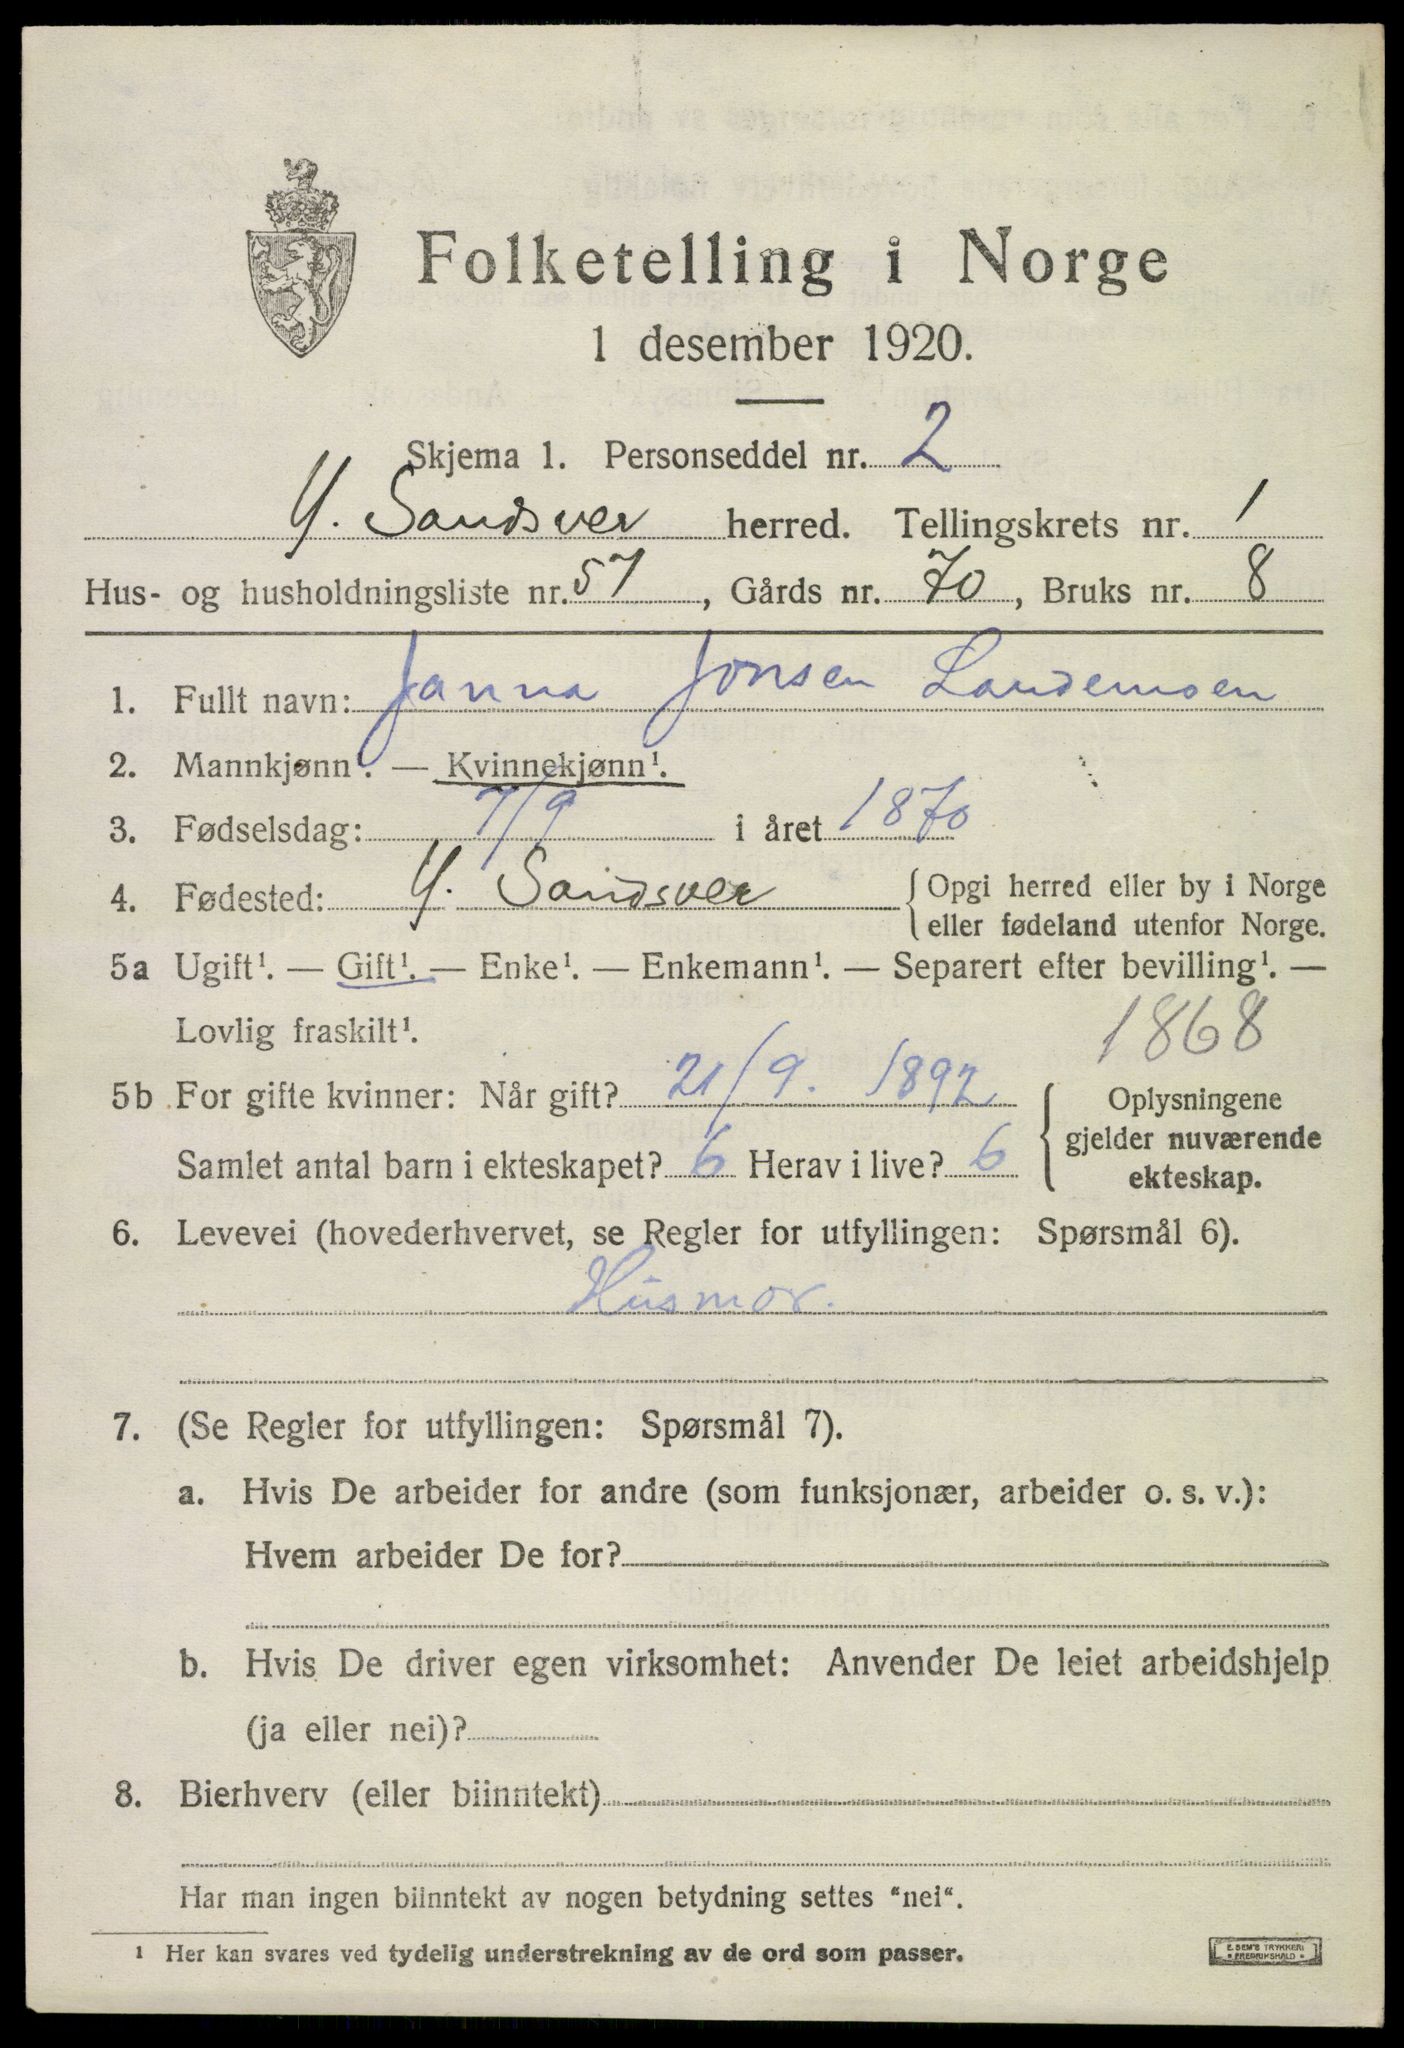 Folketelling i Norge
1 desember 1920.
Skjema 1. Personseddel nr. 2
Y. Sandsver herred. Tellingskrets nr. 1
Hus- og husholdningsliste nr. 57, Gårds nr. 70, Bruks nr. 8
1. Fullt navn: Janna Jonsen Landemoen
2. Mannkjønn¹. — Kvinnekjønn¹.
3. Fødselsdag: 7/9 i året 1870
4. Fødested: Y. Sandsver { Opgi herred eller by i Norge
eller fødeland utenfor Norge.
5a Ugift¹. — Gift¹. — Enke¹. — Enkemann¹. — Separert efter bevilling¹. —
Lovlig fraskilt¹. 1868
5b For gifte kvinner: Når gift? 21/9. 1892 { Oplysningene
gjelder nuværende
Samlet antal barn i ekteskapet? 6 Herav i live? 6 ekteskap.
6. Levevei (hovederhvervet, se Regler for utfyllingen: Spørsmål 6).
Husmor.
7. (Se Regler for utfyllingen: Spørsmål 7).
a. Hvis De arbeider for andre (som funksjonær, arbeider o. s. v.):
Hvem arbeider De for?
b. Hvis De driver egen virksomhet: Anvender De leiet arbeidshjelp
(ja eller nei)?
8. Bierhverv (eller biinntekt)
Har man ingen biinntekt av nogen betydning settes "nei".
¹ Her kan svares ved tydelig understrekning av de ord som passer.
E. SEM'S TRYKKERI
* FREDRIKSHALD *